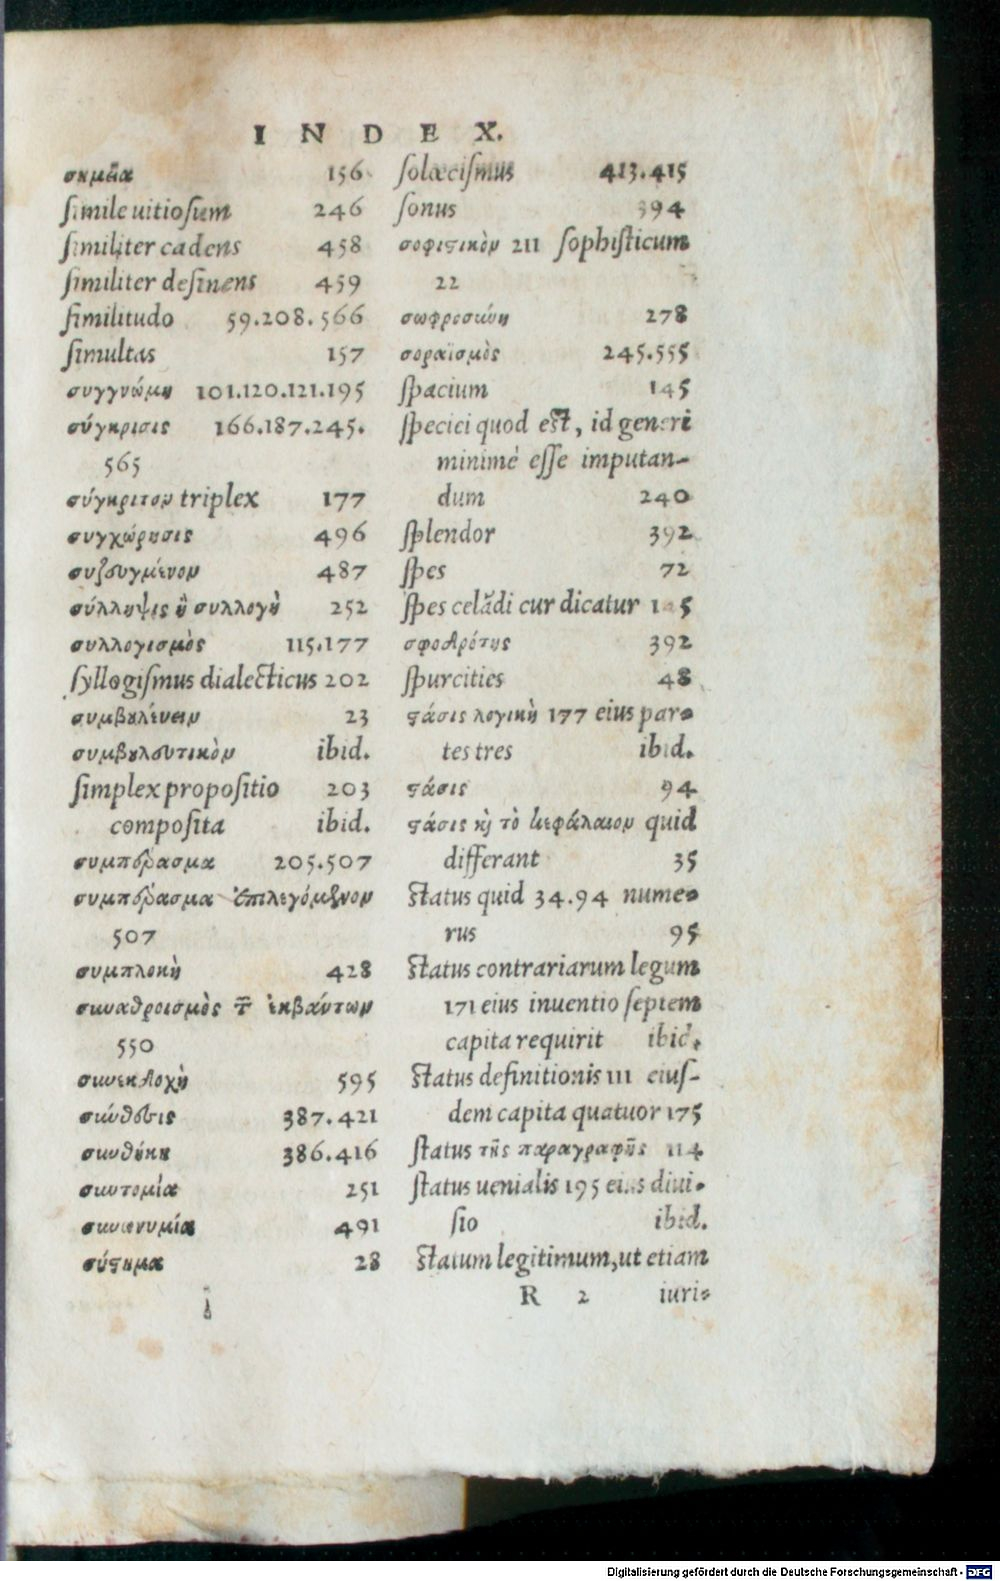 INDEX.
σημεῖα 156
simile uitiosum 246
similiter cadens 458
similiter desinens 459
similitudo 59.208.566
simultas 157
συγγνώμη 101.120.121.195
σύγκρισις 166.187.245.
565
σύγκριτον triplex 177
συγχώρησις 496
συζευγμένον 487
σύλληψις ἢ συλλογὴ 252
συλλογισμὸς 115.177
syllogismus dialecticus 202
συμβουλεύειν 23
συμβουλευτικὸν ibid.
simplex propositio 203
composita ibid.
συμπέρασμα 205.507
συμπέρασμα ἐπιλεγόμενον
507
συμπλοκὴ 428
συναθροισμὸς τῶν ἐκβάντων
550
συνεκδοχὴ 595
σύνθεσις 387.421
συνθήκη 386.416
συντομία 251
συνωνυμία 491
σύστημα 28
solœcismus 413.415
sonus 394
σοφιστικὸν 211 sophisticum
22
σωφροσύνη 278
σοραϊσμὸς 245.555
spacium 145
speciei quod est, id generi
minimè esse imputan-
dum 240
splendor 392
spes 72
spes celādi cur dicatur 145
σφοδρότης 392
spurcities 48
στάσις λογικὴ 177 eius par-
tes tres ibid.
στάσις 94
στάσις καὶ τὸ κεφάλαιον quid
differant 35
Status quid 34.94 nume-
rus 95
Status contrariarum legum
171 eius inuentio septem
capita requirit ibid.
Status definitionis 111 eius-
dem capita quatuor 175
status τῆς παραγραφῆς 114
status uenialis 195 eius diui-
sio ibid.
Statum legitimum, ut etiam
R 2 iuri-
Digitalisierung gefördert durch die Deutsche Forschungsgemeinschaft - DFG